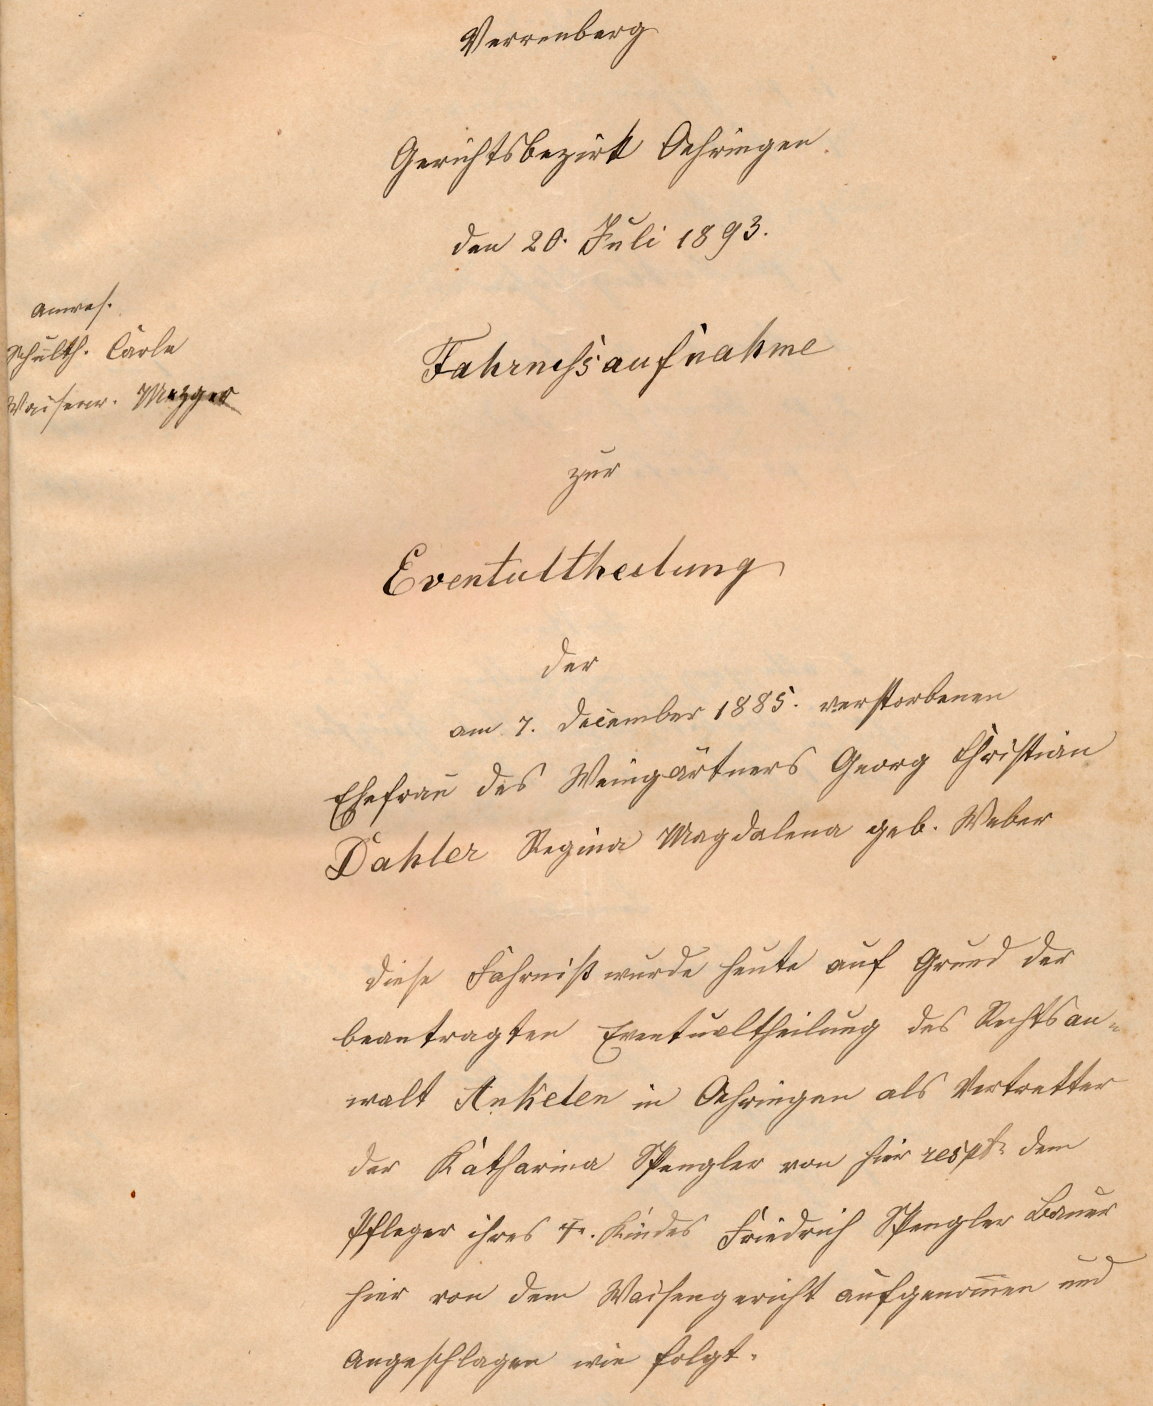 Verrenberg
Gerichtsbezirk Oehringen.
den 20. Juli 1893.
Anwes.
Schulth. Carle
Waisenr. Mezger
Fahrnißaufnahme
zur
Eventualtheilung
der
am 7. Dezember 1885. verstorbenen
Ehefrau des Weingärtners Georg Christian
Dahler Regina Magdalena geb. Weber
Diese Fahrniß wurde heute auf Grund der
beantragten Eventualtheilung des Rechtsan-
walt in Oehringen als Vertretter
der Katharina Spengler von hier respt. dem
Pfleger ihres Kindes Friedrich Spengler Bauer
hier von dem Waisengericht aufgenom̅en und
angeschlagen wie folgt.